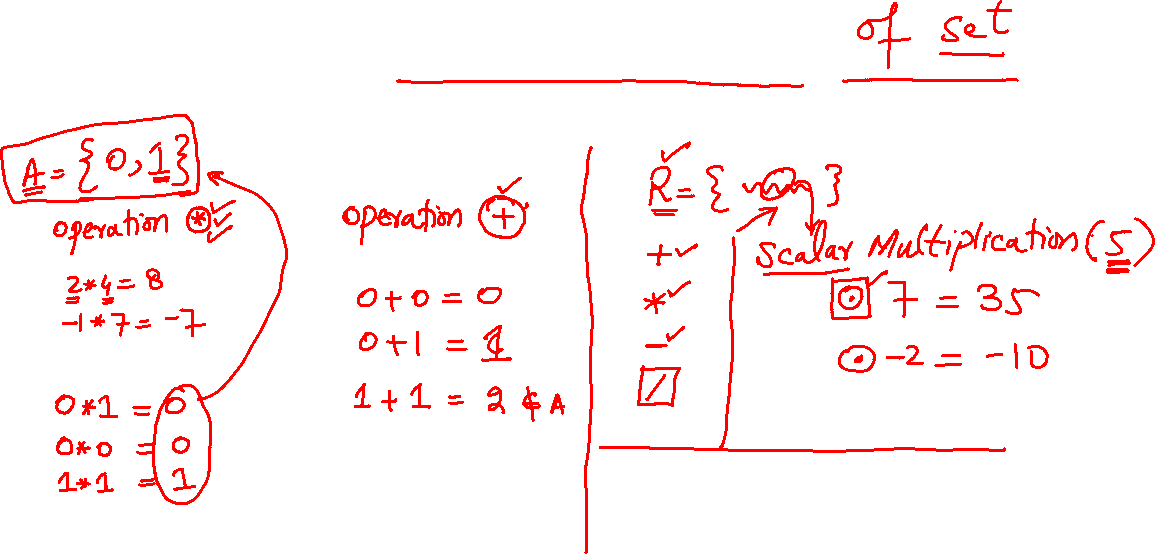 of set
A = {0, 1}
operation *
2*4 = 8
-1*7 = -7
0*1 = 0
0*0 = 0
1*1 = 1
operation +
0+0 = 0
0+1 = 1
1+1 = 2 ∉ A
R = { }
+
*
-
/
Scalar Multiplication (5)
⊙ 7 = 35
⊙ -2 = -10